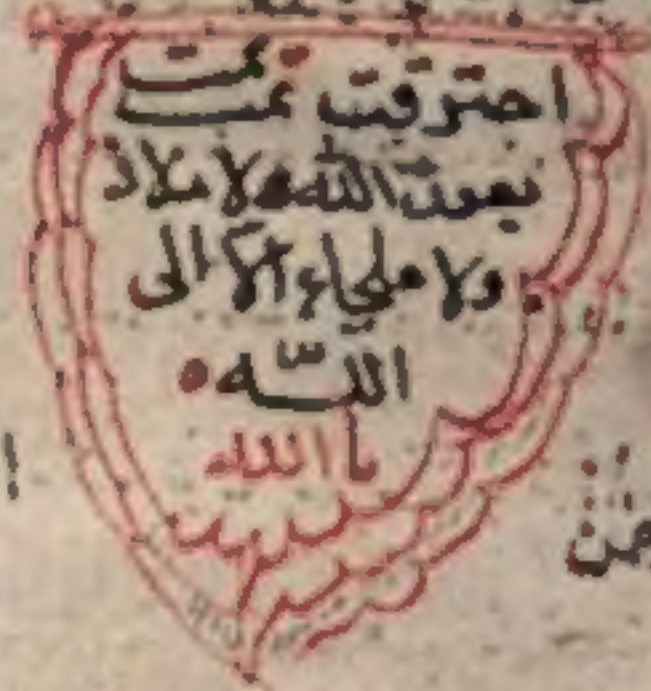 احترقت تمت تمت
بعون الله ولا ملاذ
ولا ملجاء الا الى
الله
يا الله
من